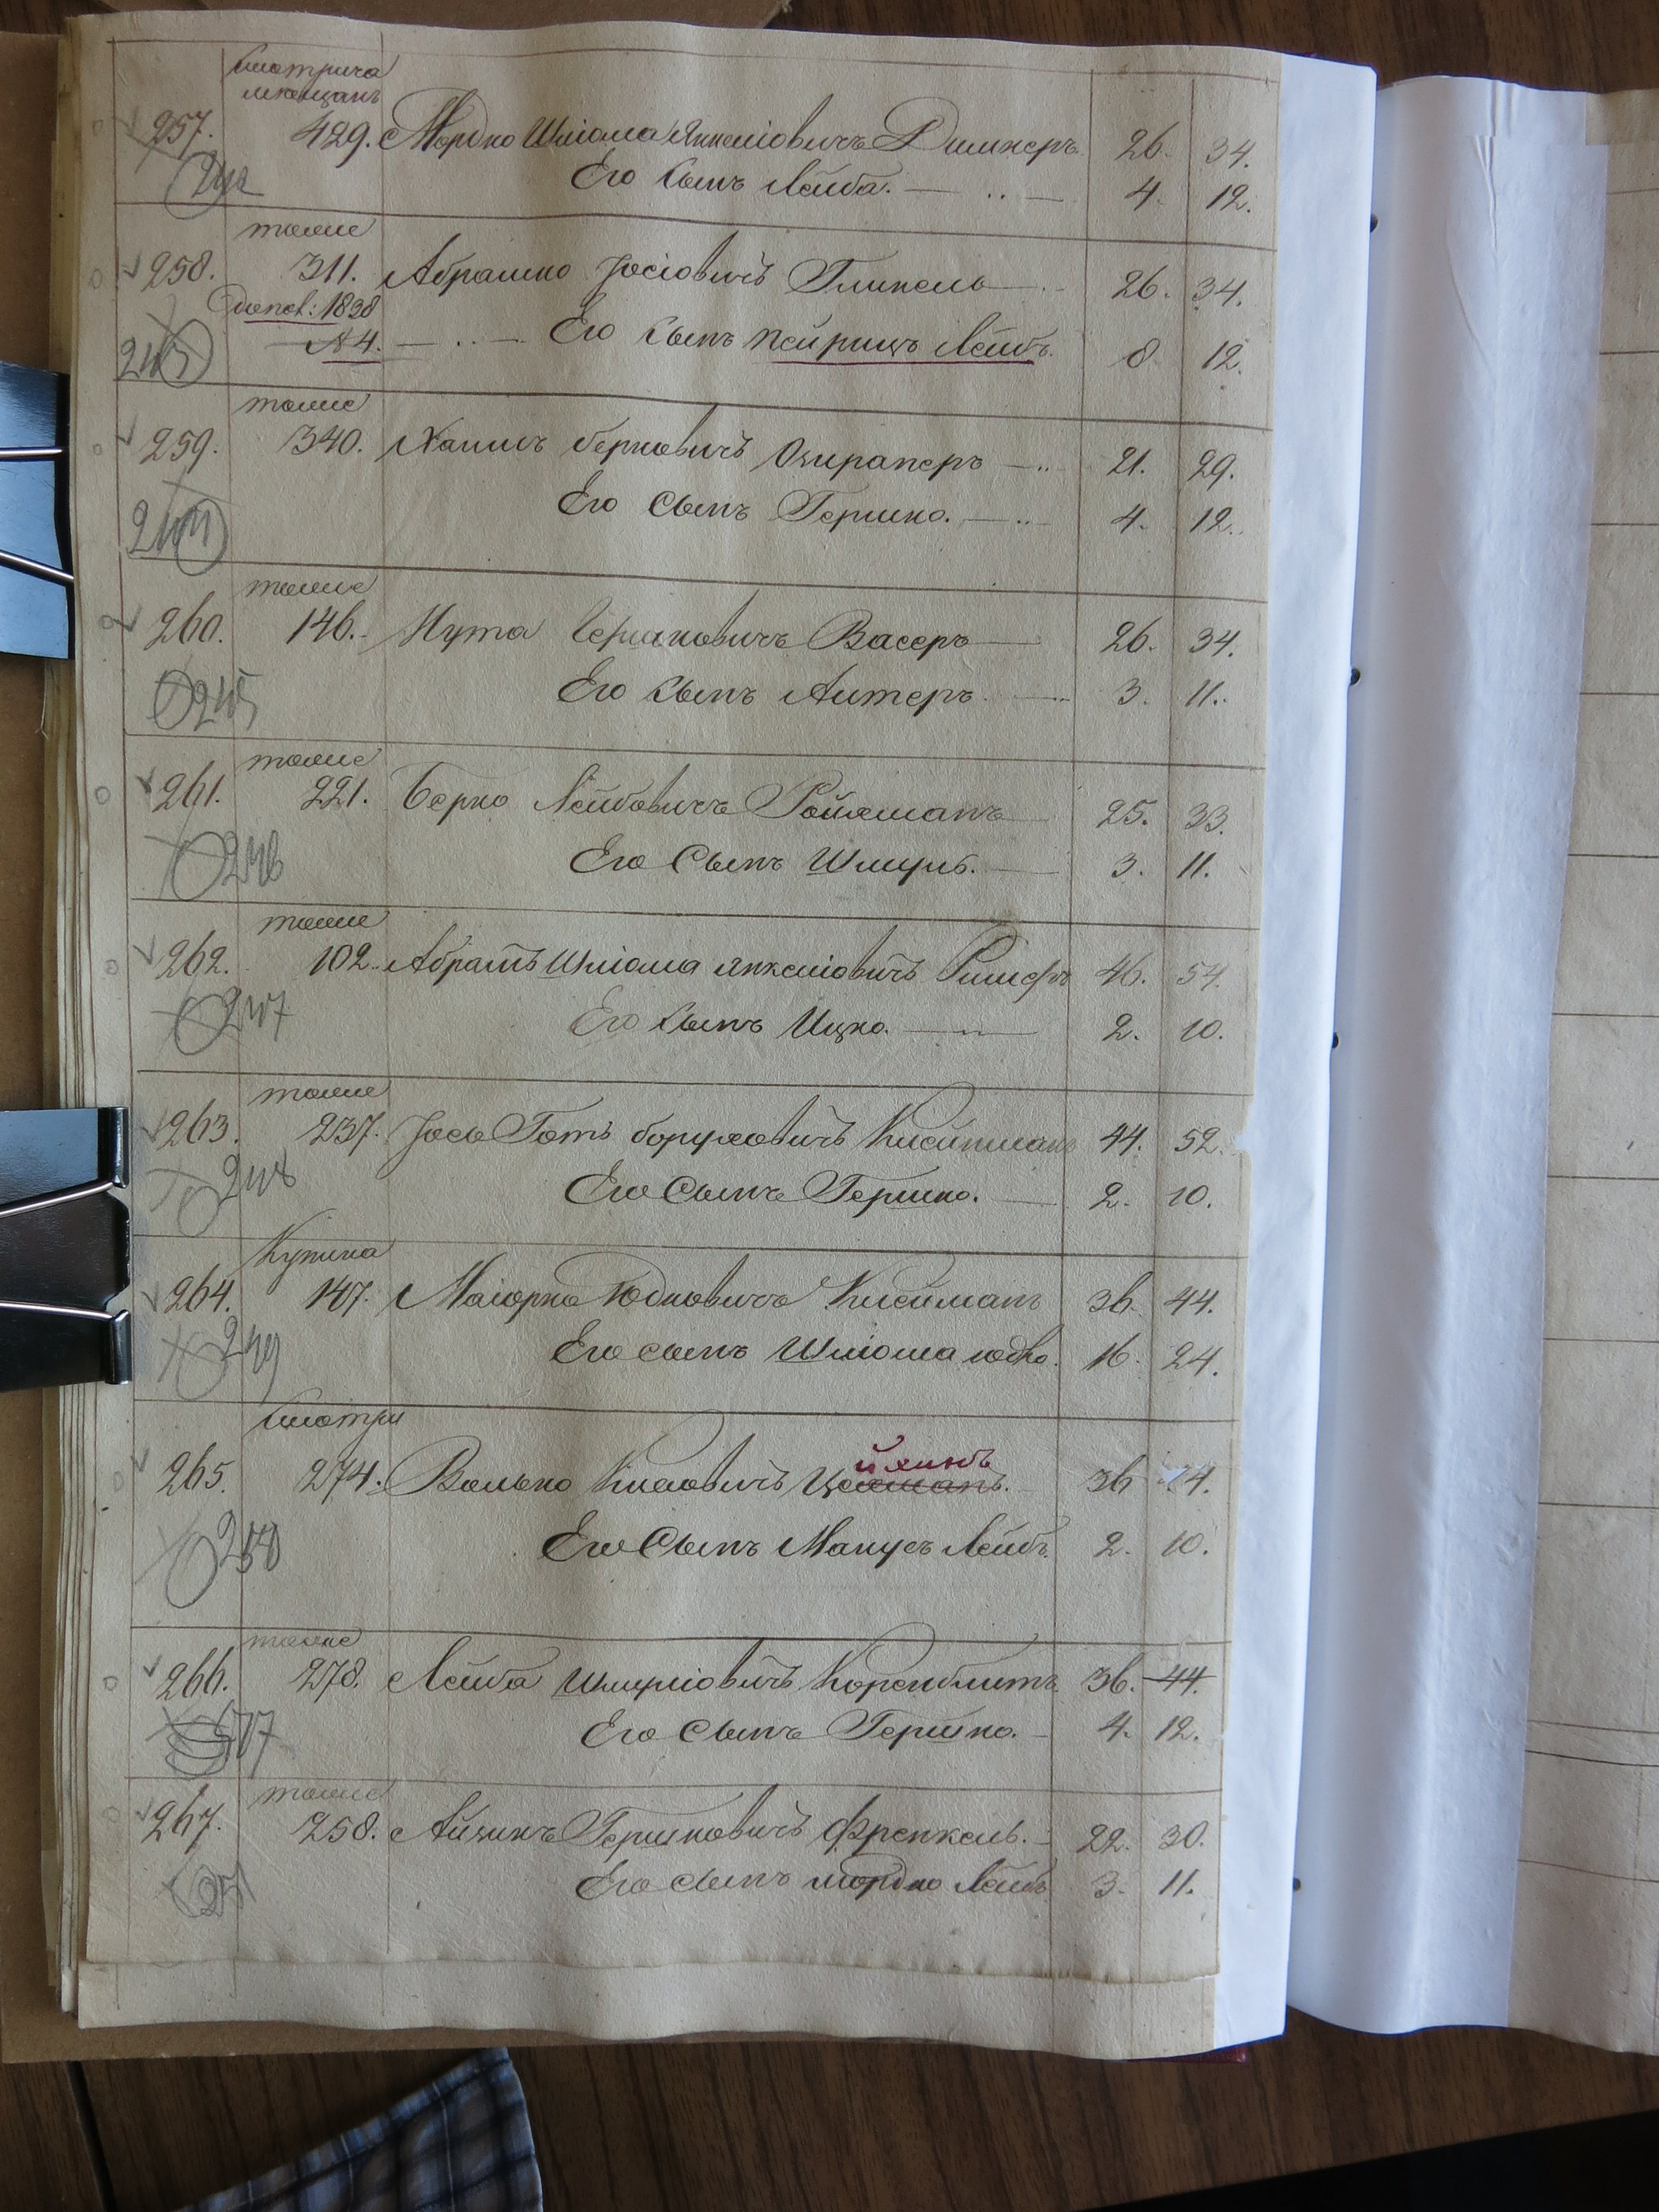 Смотрича
мещанъ
257. 429. Мордко Шліома Янкеліовичъ Димнеръ 26. 34.
242 Его Сынъ Лейба. 4. 12.
тоже
258. 311. Абрашко Іосіовичъ Гликель 26. 34.
Допол: 1838
243 № 4. Его Сынъ Пейрицъ Лейбъ. 8 12.
тоже
259. 340. Хаимъ Берковичъ 21. 29.
244 Его Сынъ Гершко. 4. 12.
тоже
260. 146. Нута Гершковичъ Васеръ 26. 34.
245 Его Сынъ Алтеръ. 3. 11.
тоже
261. 221. Берко Лейбовичъ Ройхманъ 25. 33.
246 Его Сынъ Шмуль. 3. 11.
тоже
262. 102. Абрамъ Шліома Янкеліовичъ 46. 54.
247 Его Сынъ Ицко. 2. 10.
тоже
263. 237. Іось Готъ Боруховичъ Клейнманъ 44. 52.
248 Его Сынъ Гершко. 2. 10.
Купина
264. 147. Маіорко Юдковичъ Клейманъ 36. 44.
249 Его сынъ Шліома Юдко. 16. 24.
Смотри
йхинъ
265. 274. Волько Киловичъ Цехманъ. 36 44.
250 Его Сынъ Манусъ Лейбъ. 2. 10.
тоже
266. 278. Лейба Шмуліовичъ Коренблитъ 36. 44.
Его Сынъ Гершко. 4. 12.
тоже
267. 258. Айзикъ Гершковичъ Френкель. 22. 30.
251 Его сынъ Мордко Лейбъ 3. 11.